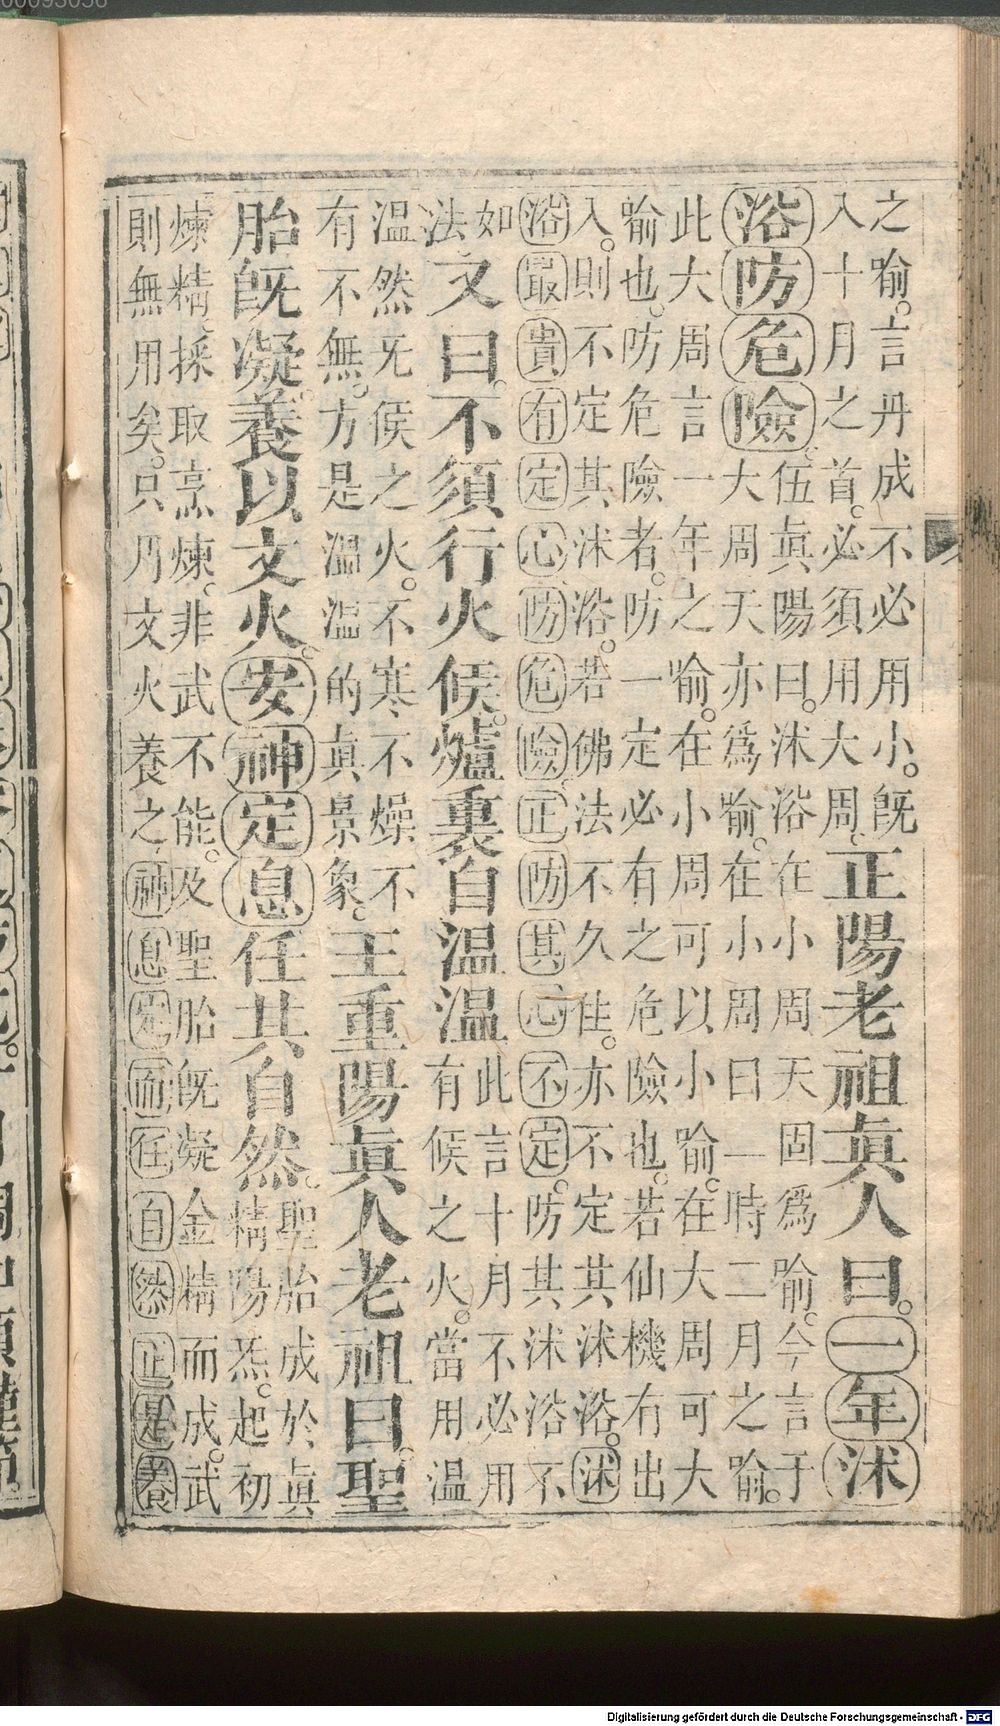 之喻。言丹成不必用小。旣
入十月之首。必須用大周。
正陽老祖眞人曰。一年沐
浴防危險。
伍眞陽曰。沐浴在小周天固爲喻。今言于
大周天亦爲喻。在小周曰一時二月之喻。
此大周言一年之喻。在小周可以小喻。在大周可大
喻也。防危險者。防一定必有之危險也。若仙機有出
入。則不定其沐浴。若佛法不久住。亦不定其沐浴。沐
浴最貴有定心防危險正防其心不定。防其沐浴不
如
法。
又曰。不須行火候。爐裏自温温
此言十月不必用
有候之火。當用温
温然旡候之火。不寒不燥不
有不無。方是温温的眞景象。
王重陽眞人老祖曰。聖
胎旣凝。養以文火。安神定息任其自然。
聖胎成於眞
精陽炁。起初
煉精。採取烹煉。非武不能。及聖胎旣凝金精而成。武
則無用矣。只乃文火養之。神息定而任自然正是養
Digitalisierung gefördert durch die Deutsche Forschungsgemeinschaft - DFG